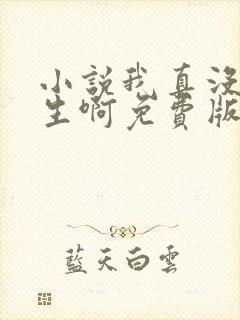 小説我真沒
生啊免費版
藍天白雲